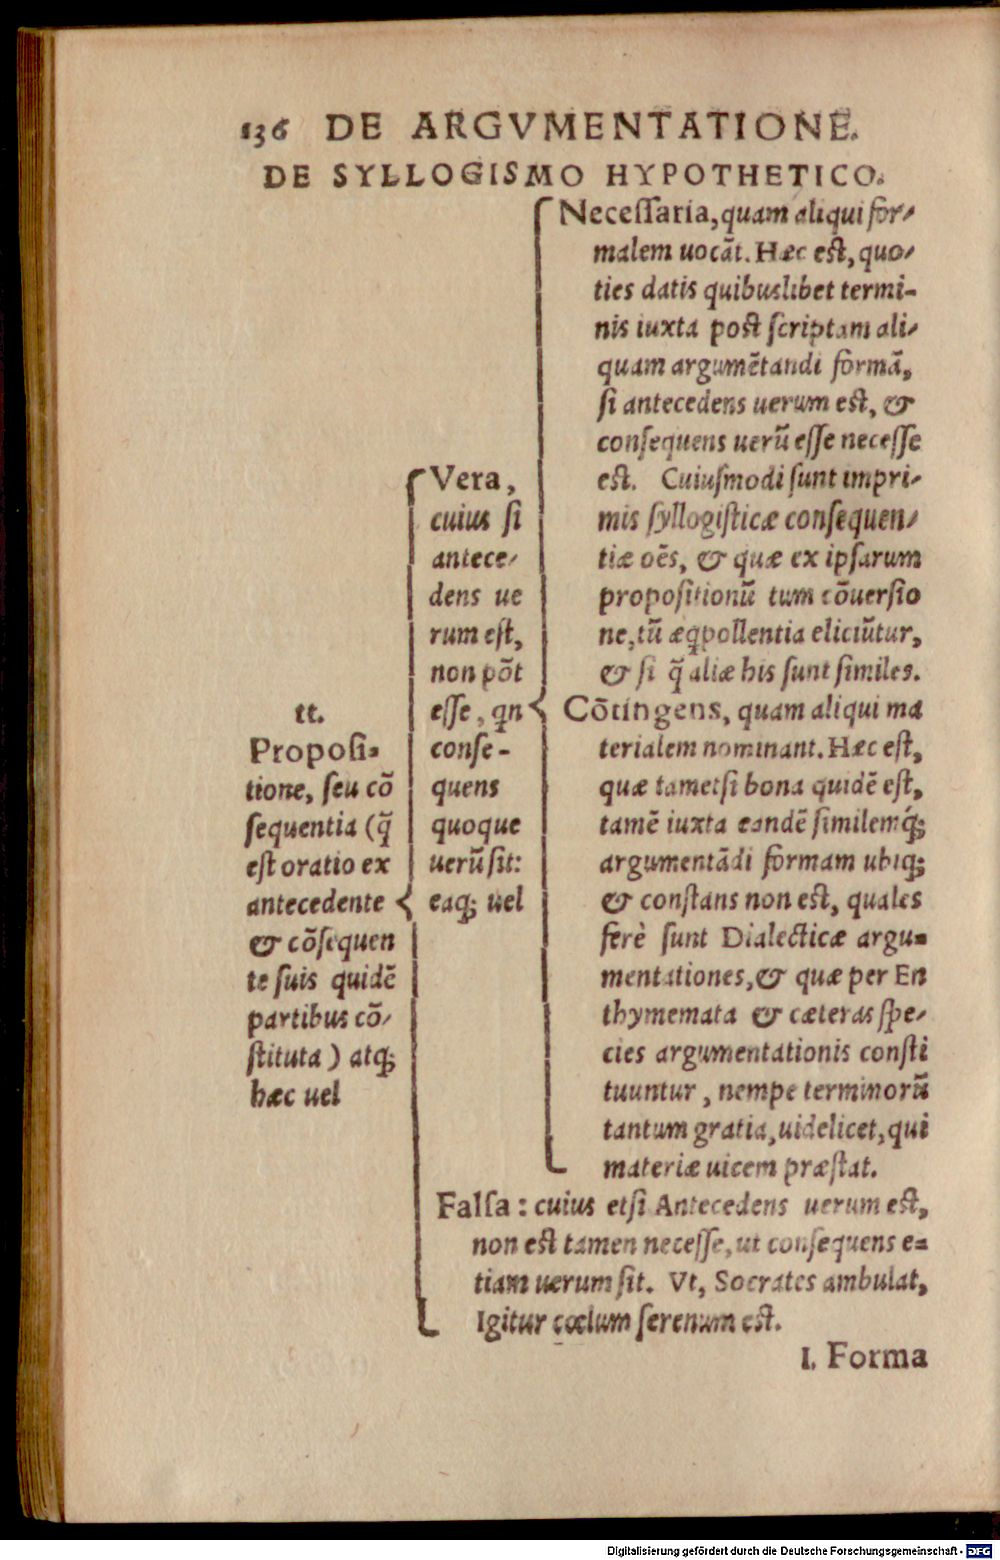 136 DE ARGVMENTATIONE.
DE SYLLOGISMO HYPOTHETICO.
tt.
Proposi-
tione, seu cō
sequentia (q̃
est oratio ex
antecedente
& cōsequen
te suis quidē
partibus cō-
stituta) atq;
hæc uel
Vera,
cuius si
antece-
dens ue
rum est,
non pōt
esse, qn
conse-
quens
quoque
uerũ sit:
eaq; uel
Necessaria, quam aliqui for-
malem uocãt. Hæc est, quo-
ties datis quibuslibet termi-
nis iuxta post scriptam ali-
quam argumētandi formã,
si antecedens uerum est, &
consequens uerũ esse necesse
est. Cuiusmodi sunt impri-
mis syllogisticæ consequen-
tiæ oēs, & quæ ex ipsarum
propositionũ tum cōuersio
ne, tũ æq̃pollentia eliciũtur,
& si q̃ aliæ his sunt similes.
Cōtingens, quam aliqui ma
terialem nominant. Hæc est,
quæ tametsi bona quidē est,
tamē iuxta eandē similemq́;
argumentãdi formam ubiq;
& constans non est, quales
ferè sunt Dialecticæ argu-
mentationes, & quæ per En
thymemata & cæteras spe-
cies argumentationis consti
tuuntur, nempe terminorũ
tantum gratia, uidelicet, qui
materiæ uicem præstat.
Falsa: cuius etsi Antecedens uerum est,
non est tamen necesse, ut consequens e-
tiam uerum sit. Vt, Socrates ambulat,
Igitur cœlum serenum est.
I. Forma
Digitalisierung gefördert durch die Deutsche Forschungsgemeinschaft - DFG